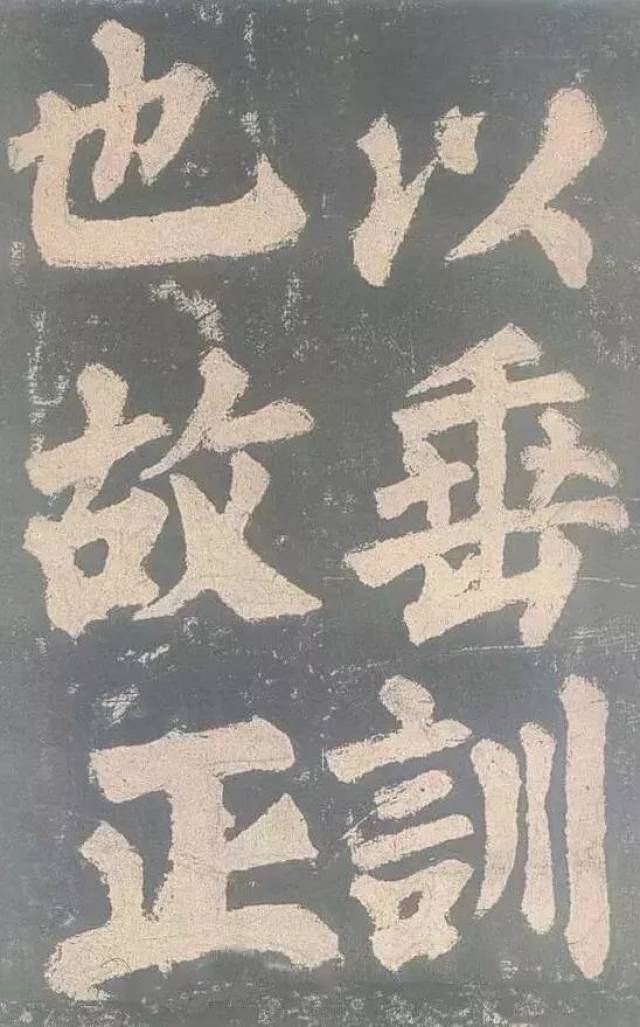 以垂訓
也故正